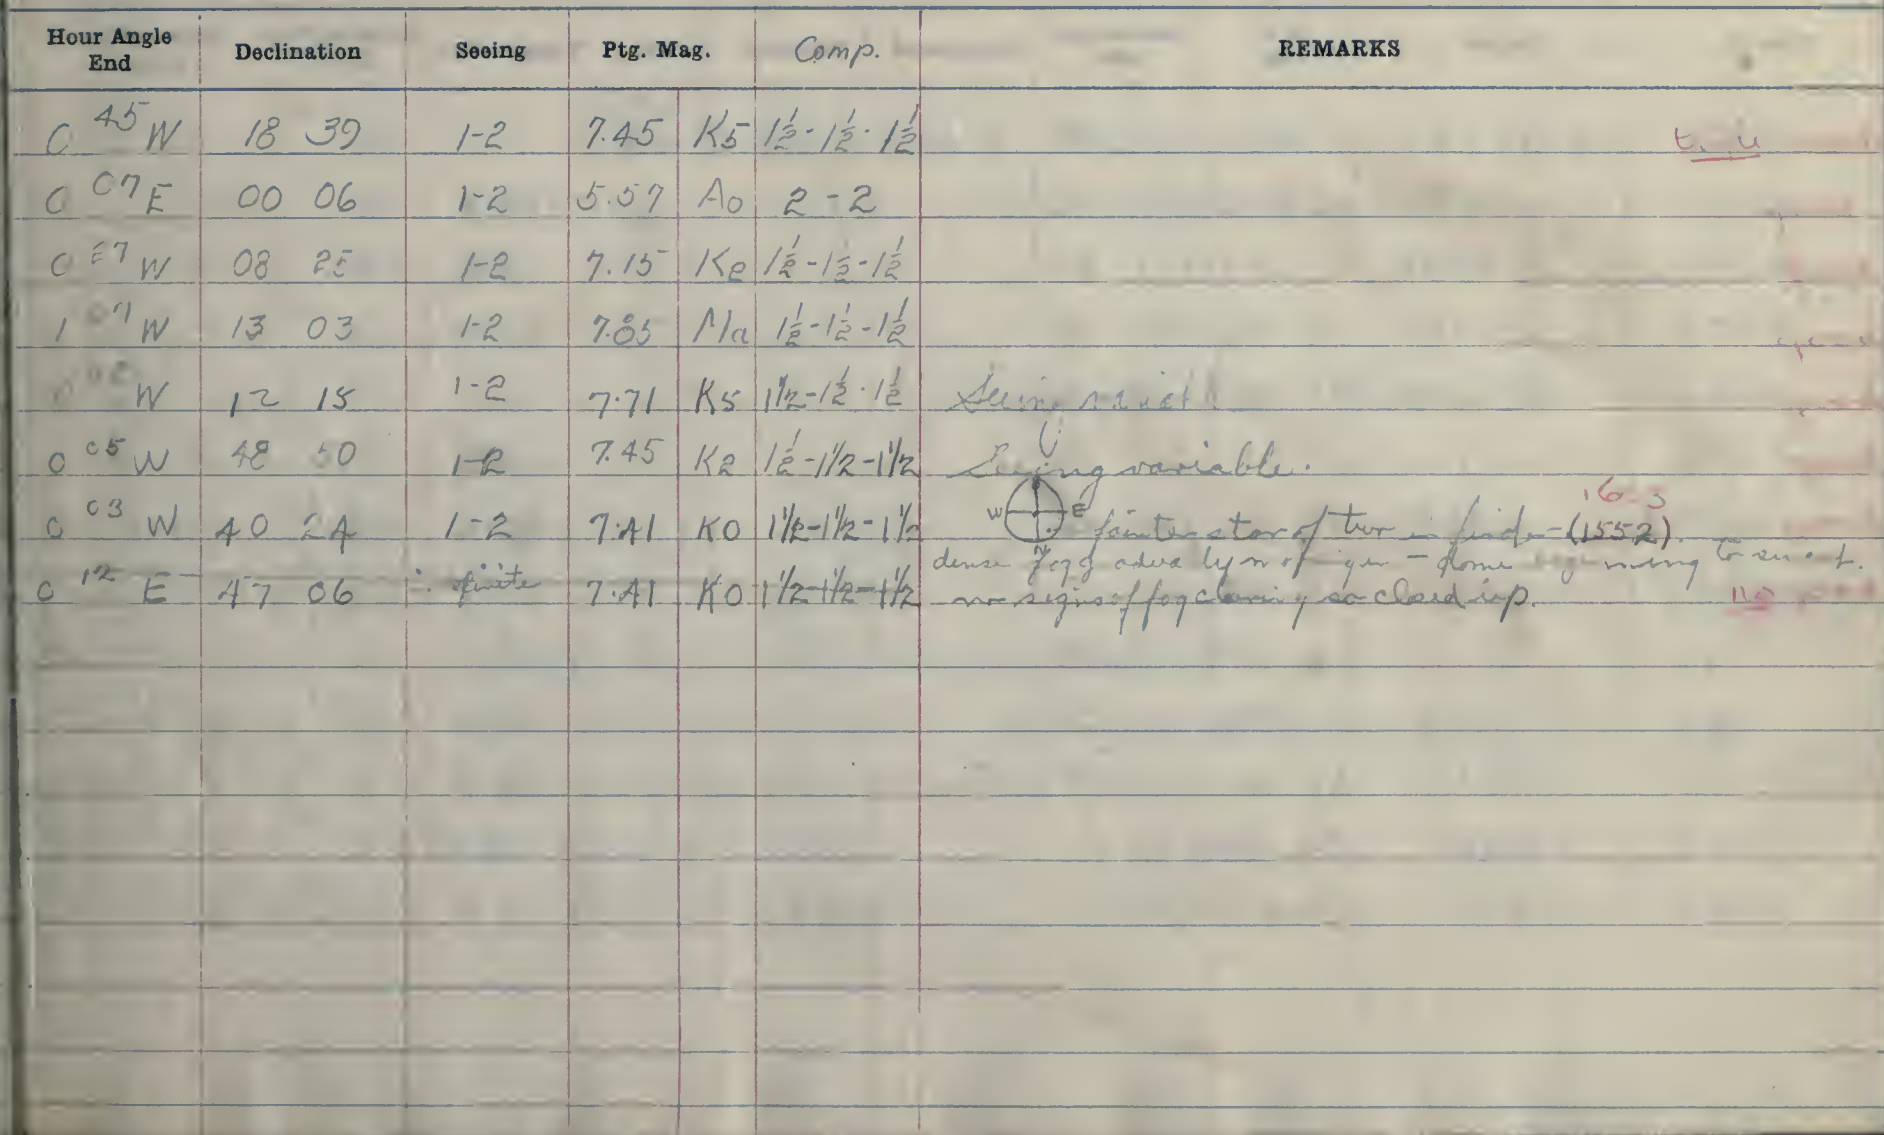 Hour Angle End Declination Seeing Ptg. Mag. Comp. REMARKS
0 45 W 18 39 1-2 7.45 K5 1½-1½-1½
0 07 E 00 06 1-2 5.57 A0 2-2
0 W 08 1-2 7.15 K2 1½-1½-1½
1 07 W 13 03 1-2 Ma 1½-1½-1½
W 12 15 1-2 7.71 K5 1½-1½-1½ Seeing
0 05 W 48 1-2 7.45 K2 1½-1½-1½ Seeing variable.
W E
0 03 W 40 24 1-2 7.41 K0 1½-1½-1½ fainter star of two in finder-(1552).
dense fog to
0 12 E 47 06 7.41 K0 1½-1½-1½ no signs of fog clearing so closed up.